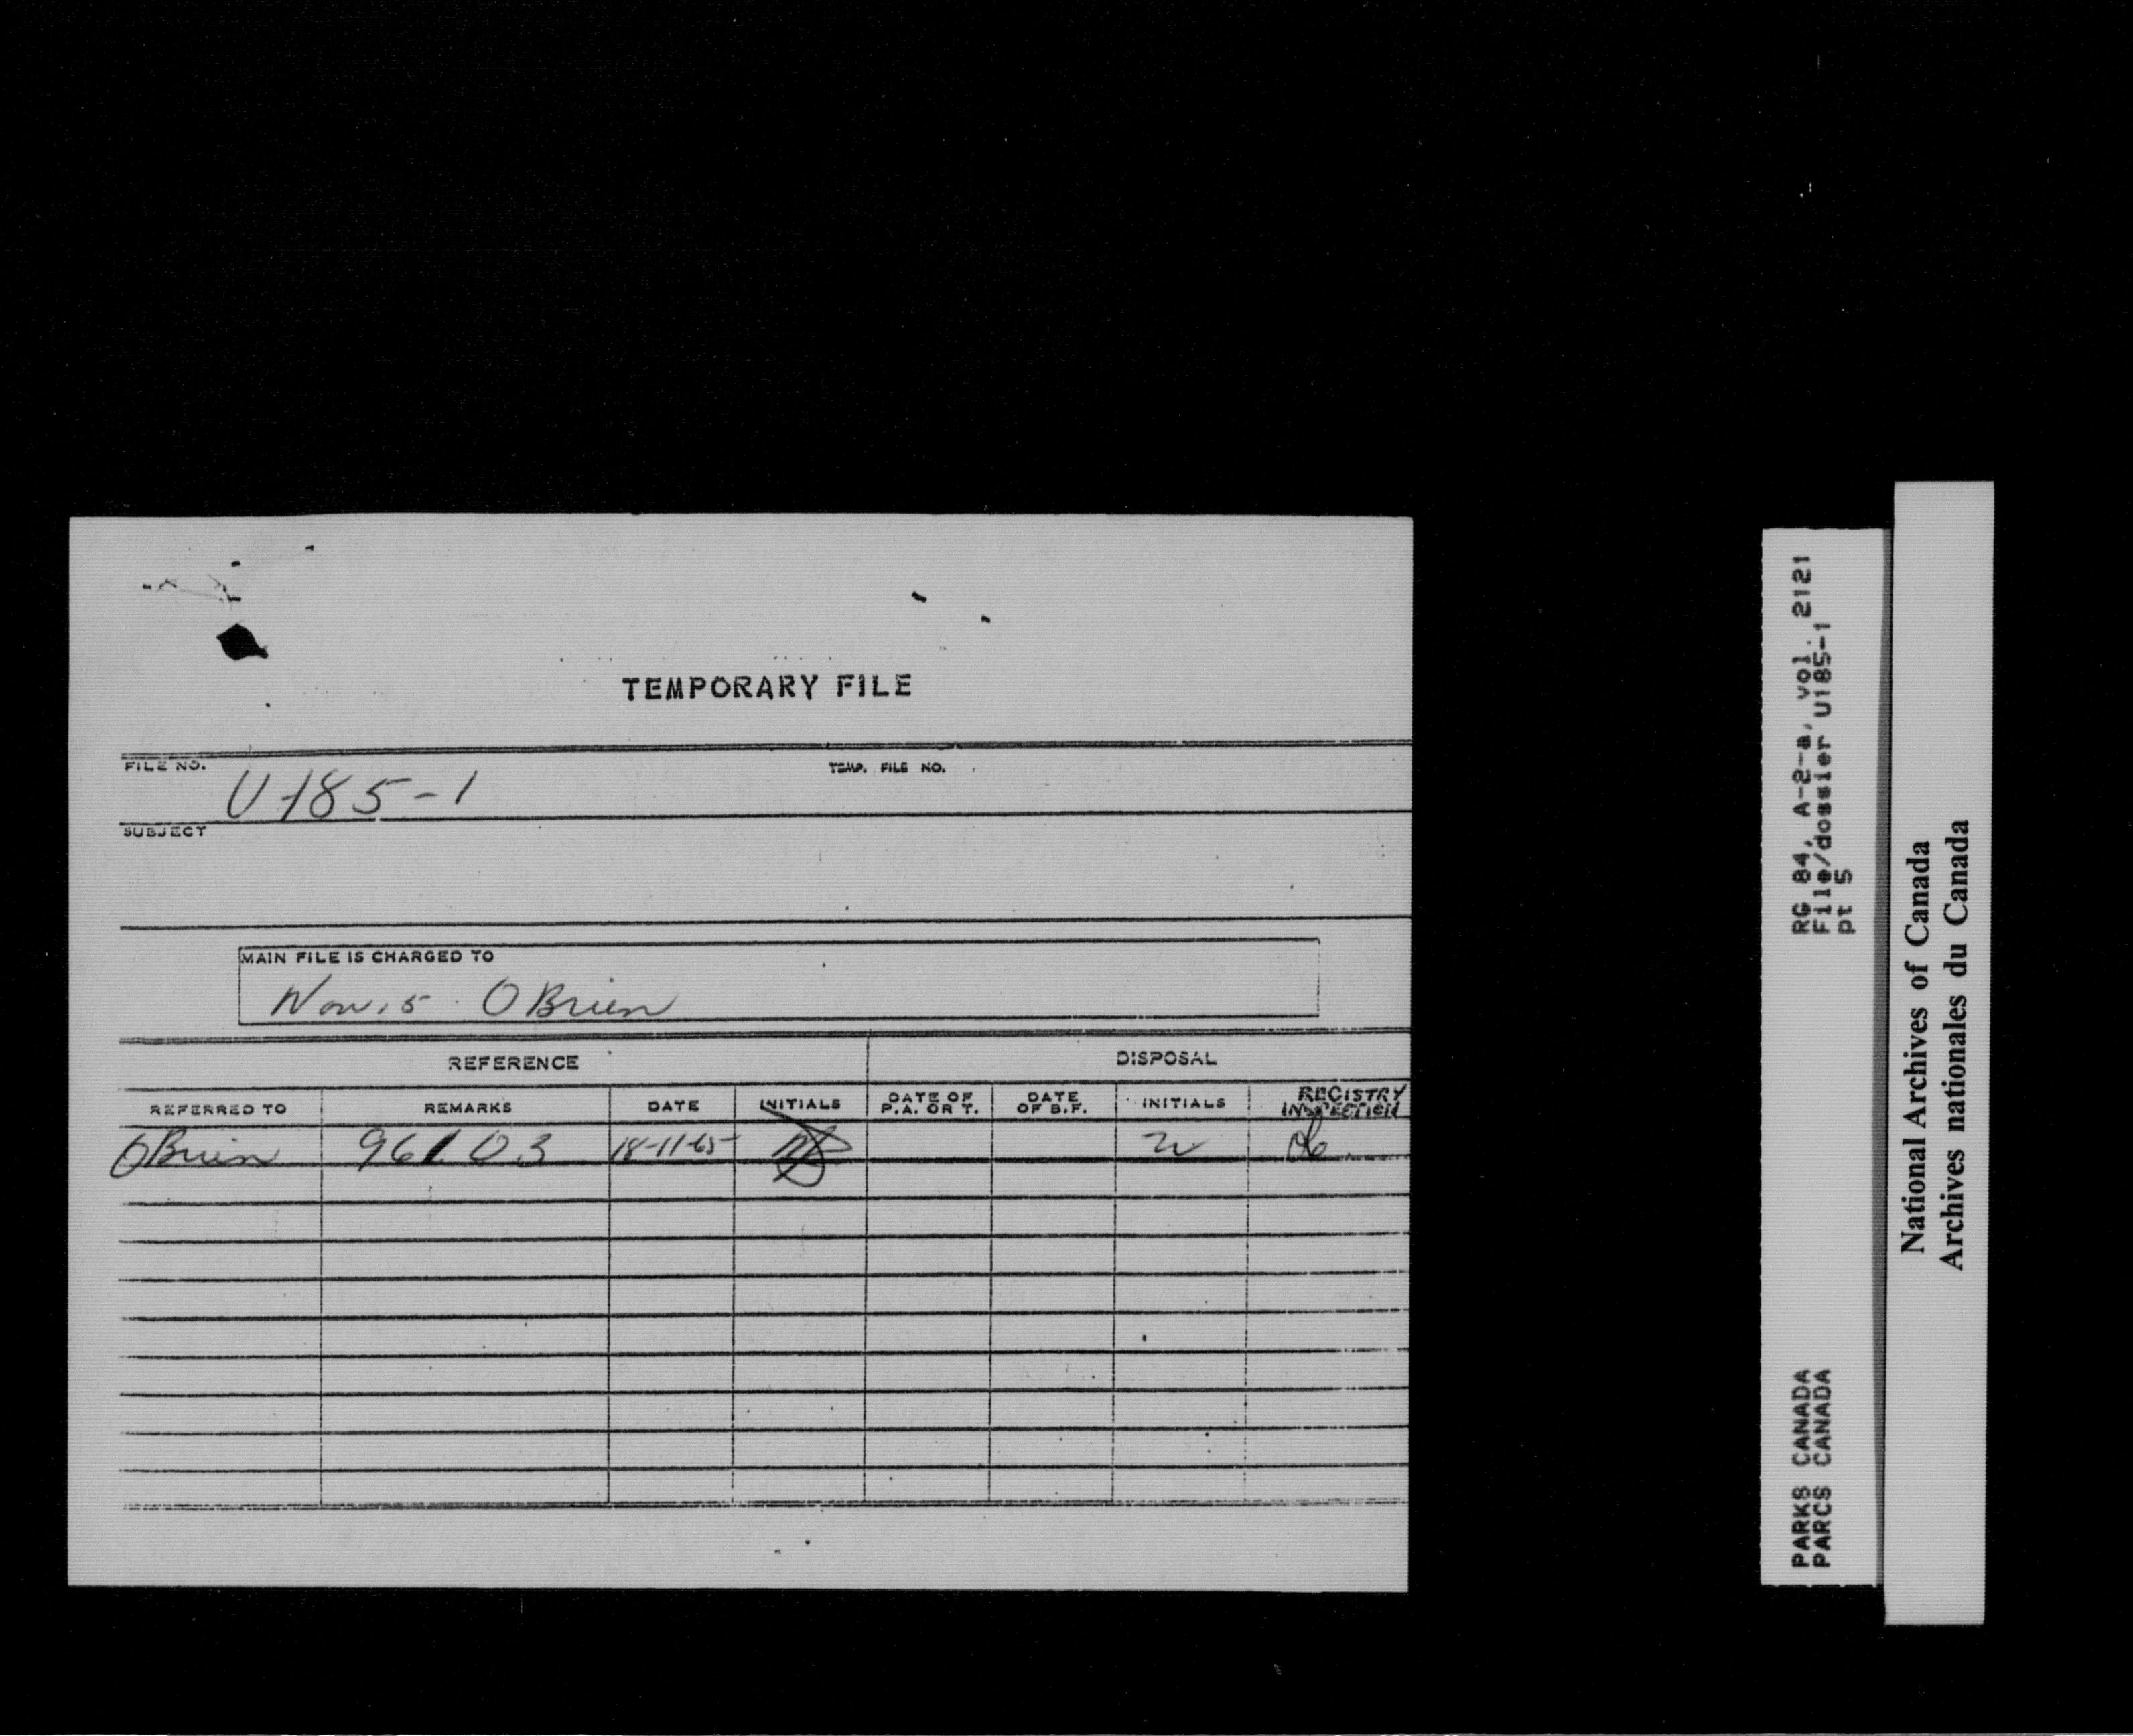 TEMPORARY FILE
FILE NO. U185-1 TEMP. FILE NO.
SUBJECT
MAIN FILE IS CHARGED TO
Nov. 5 O Brien
REFERENCE DISPOSAL
REFERRED TO REMARKS DATE INITIALS DATE OF P.A. OR T. DATE OF B.F. INITIALS REGISTRY INSPECTION
O Brien 96103 18-11-65
RG 84, A-2-a, vol. 2121
File/dossier U185-1
pt 5
PARKS CANADA
PARCS CANADA
National Archives of Canada
Archives nationales du Canada